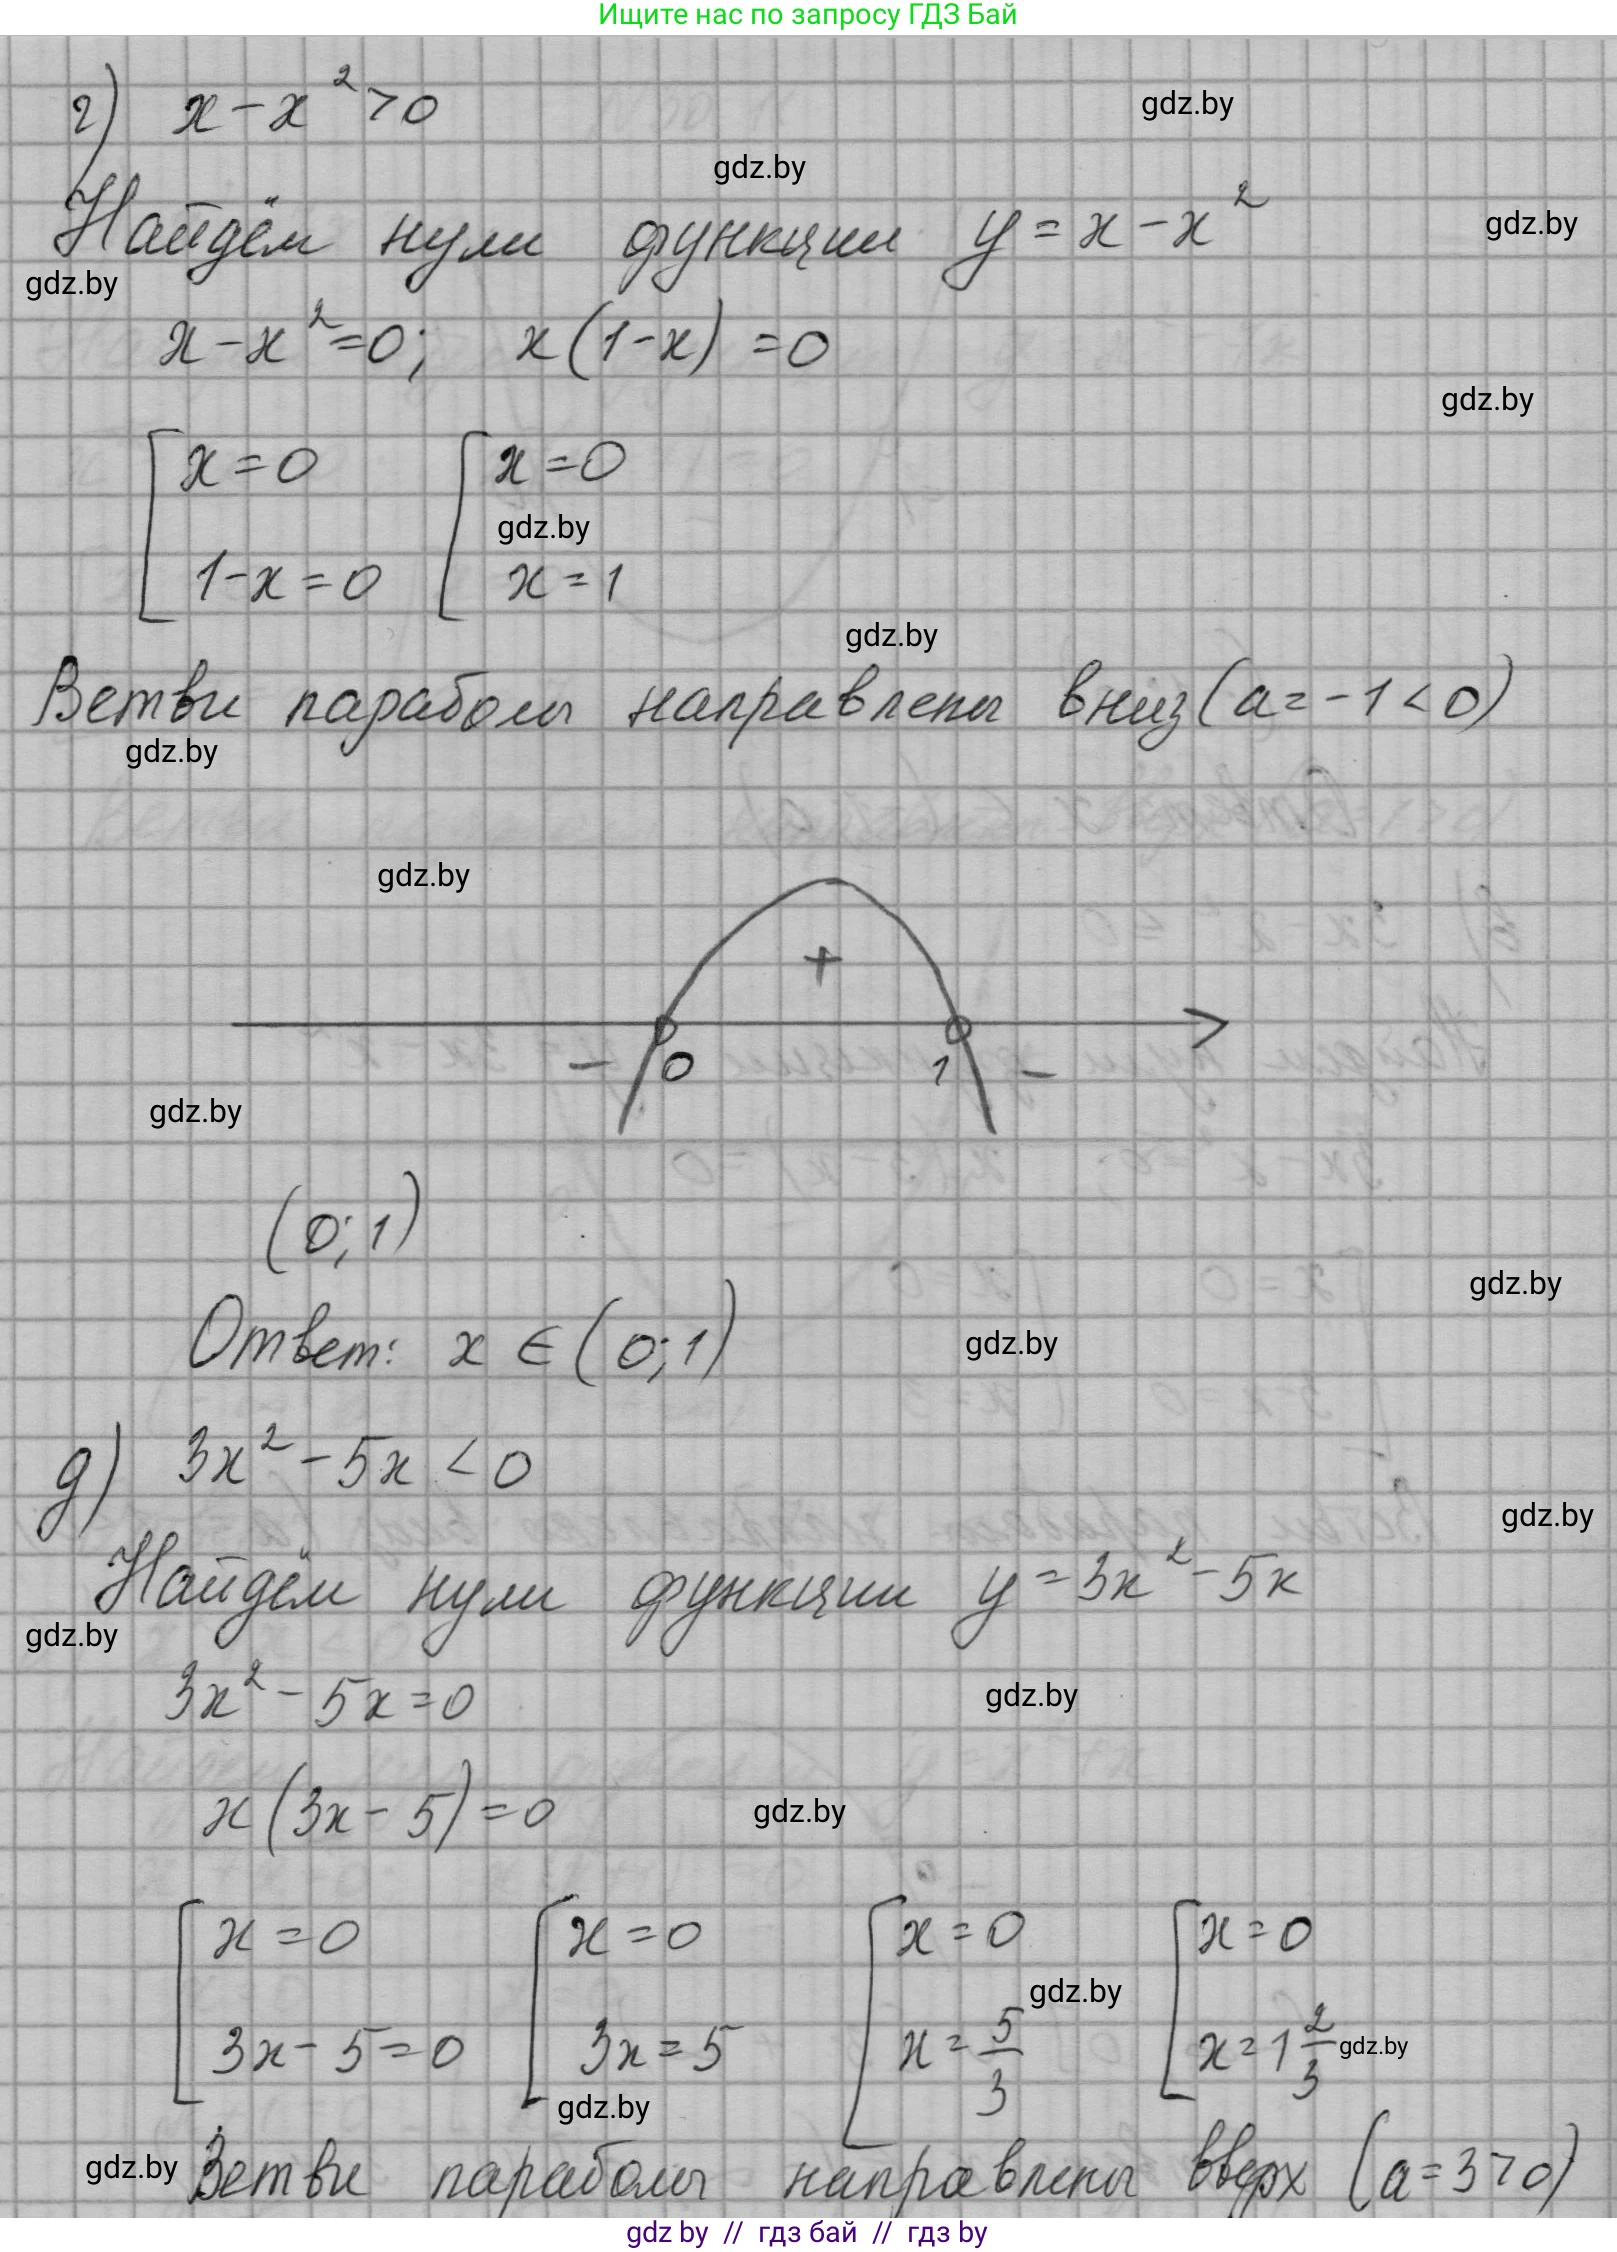 Ищите нас по запросу ГДЗ Бай
г) x - x² > 0
gdz.by
gdz.by
Найдём нули функции y = x - x²
gdz.by
gdz.by
x - x² = 0; x(1-x) = 0
gdz.by
x = 0 x = 0
gdz.by
1-x = 0 x = 1
gdz.by
Ветви параболы направлены вниз (a = -1 < 0)
gdz.by
gdz.by
+
- 0 1 -
gdz.by
(0; 1)
gdz.by
Ответ: x ∈ (0; 1)
gdz.by
д) 3x² - 5x < 0
gdz.by
Найдём нули функции y = 3x² - 5x
gdz.by
3x² - 5x = 0
gdz.by
x(3x - 5) = 0
gdz.by
x = 0 x = 0 x = 0 x = 0
gdz.by
3x - 5 = 0 3x = 5 x = 5/3 x = 1 2/3
gdz.by
gdz.by
gdz.by
Ветви параболы направлены вверх (a = 3 > 0)
gdz by // гдз бай // гдз by